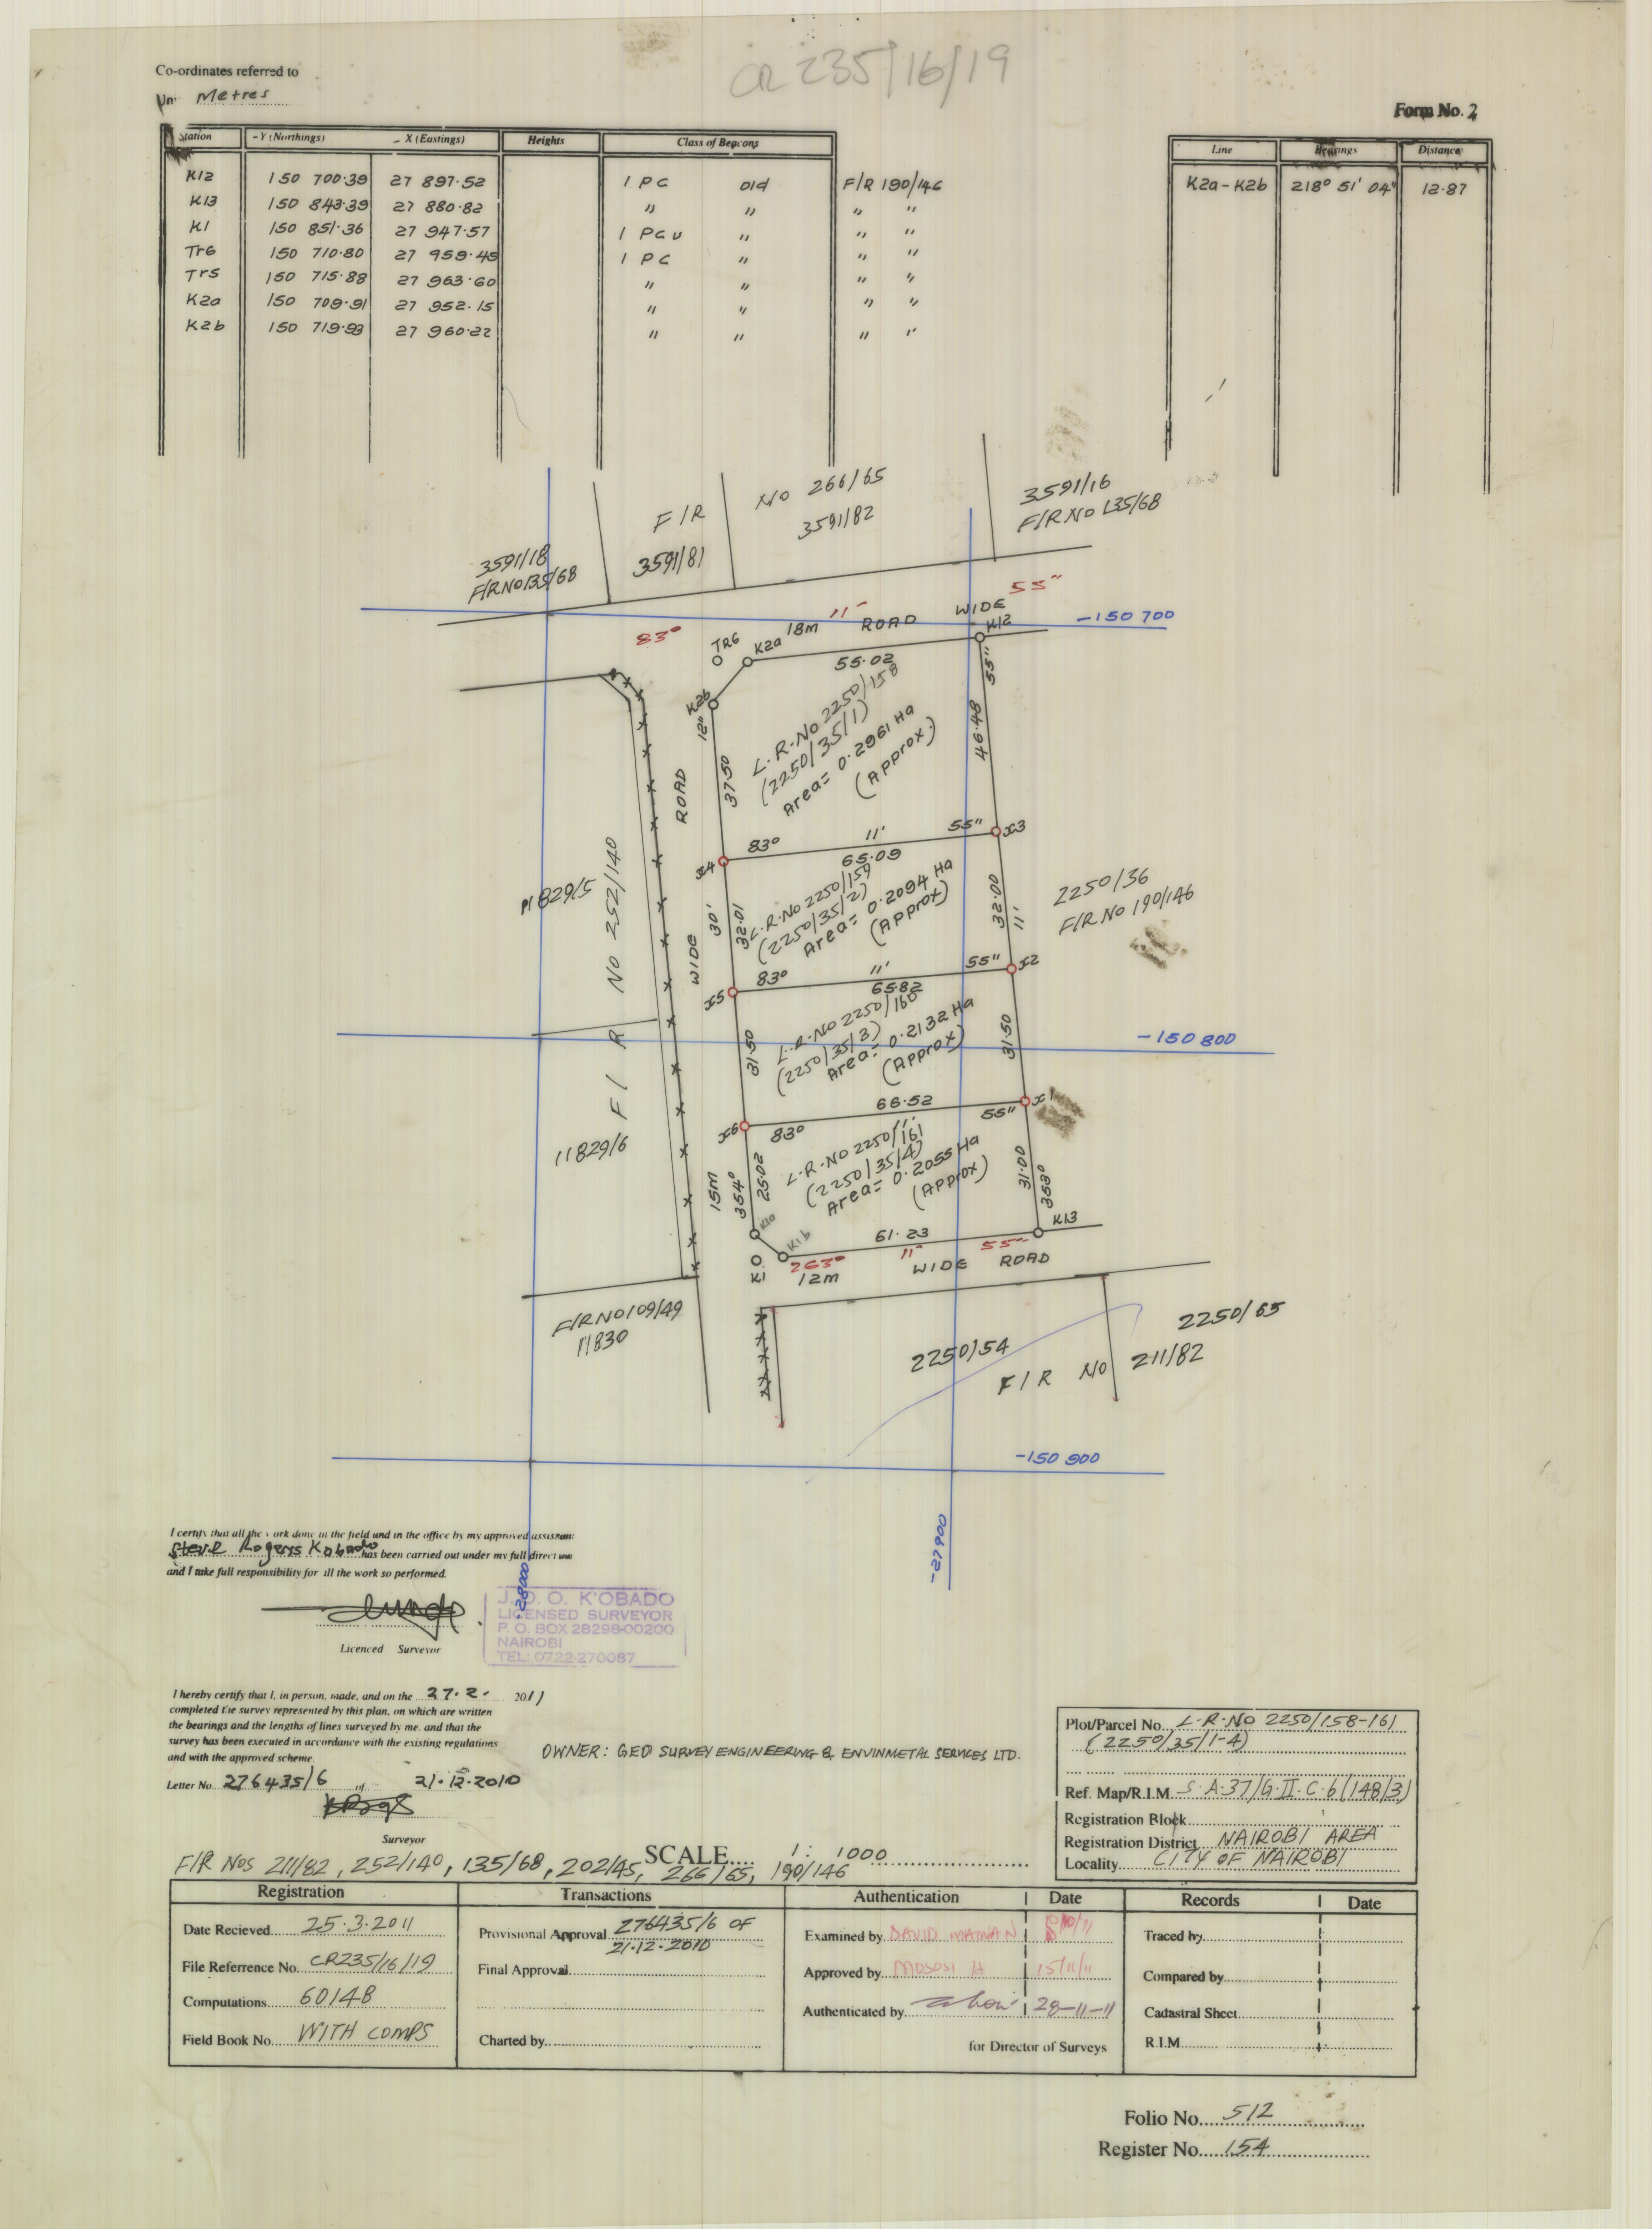 CR 235/16/19
Co-ordinates referred to
Metres
Form No. 2
Station -Y (Northings) - X (Eastings) Heights Class of Beacons
K12 150 700.39 27 897.52 1 PC old F/R 190/146
K13 150 843.39 27 880.82 " " " "
K1 150 851.36 27 947.57 1 PCU " " "
Tr6 150 710.80 27 959.45 1 PC " " "
Tr5 150 715.88 27 963.60 " " " "
K2a 150 709.91 27 952.15 " " " "
K2b 150 719.93 27 960.22 " " " "
Line Bearings Distance
K2a-K2b 218° 51' 04" 12.87
F/R NO 266/65
3591/18
F/R NO 135/68
3591/81
3591/82
3591/16
F/R NO 135/68
83° 11' 55"
18m ROAD WIDE
-150 700
TR6 K2a K12
55.02
K2b
12"
37.50
55"
46.48
L.R.No 2250/158
(2250/35/1)
Area= 0.2961 Ha
(Approx)
83° 11' 55"
x4 65.09 x3
L.R.No 2250/159
(2250/35/2)
Area= 0.2094 Ha
(Approx)
30'
32.01
32.00
11'
2250/36
F/R No 190/146
11829/5
F/R NO 252/140
15m WIDE ROAD
83° 11' 55"
x5 65.82 x2
L.R.No 2250/160
(2250/35/3)
Area= 0.2132 Ha
(Approx)
31.50
31.50
-150 800
66.52
x6 83° 11' 55" x1
L.R.No 2250/161
(2250/35/4)
Area= 0.2055 Ha
(Approx)
354°
25.02
31.00
353°
11829/6
K1a K1b K13
61.23
K1.O
263° 11' 55"
12m WIDE ROAD
F/R NO 109/49
11830
2250/54
2250/65
F/R NO 211/82
-150 900
-28000
-27900
I certify that all the work done in the field and in the office by my approved assistant
Steve Rogers Kobado has been carried out under my full direction
and I take full responsibility for all the work so performed.
Licenced Surveyor
J. O. O. K'OBADO
LICENSED SURVEYOR
P. O. BOX 28298-00200
NAIROBI
TEL: 0722-270087
I hereby certify that I, in person, made, and on the 27.2. 2011
completed the survey represented by this plan, on which are written
the bearings and the lengths of lines surveyed by me, and that the
survey has been executed in accordance with the existing regulations
and with the approved scheme.
Letter No. 276435/6 of 21.12.2010
Surveyor
OWNER: GEO SURVEY ENGINEERING & ENVINMETAL SERVICES LTD.
Plot/Parcel No. L.R.NO 2250/158-161
(2250/35/1-4)
Ref. Map/R.I.M. S.A.37/G.II.C.6(148/3)
Registration Block
Registration District NAIROBI AREA
Locality CITY OF NAIROBI
SCALE 1: 1000
F/R Nos 211/82, 252/140, 135/68, 202/45, 266/65, 190/146
Registration Transactions Authentication Date Records Date
Date Recieved 25.3.2011
File Referrence No. CR235/16/19
Computations 60148
Field Book No. WITH COMPS
Provisional Approval 276435/6 OF
21.12.2010
Final Approval
Charted by
Examined by DAVID
Approved by MOSOSI H 15/11/11
Authenticated by 28-11-11
for Director of Surveys
Traced by
Compared by
Cadastral Sheet
R.I.M.
Folio No. 512
Register No. 154